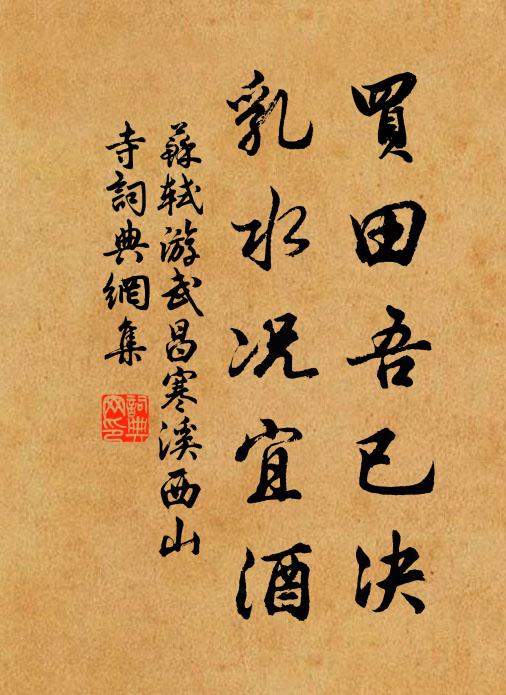 買田吾已决
乳水况宜酒
蘇軾游武昌寒溪西山
寺詞典網集
詞典
网印